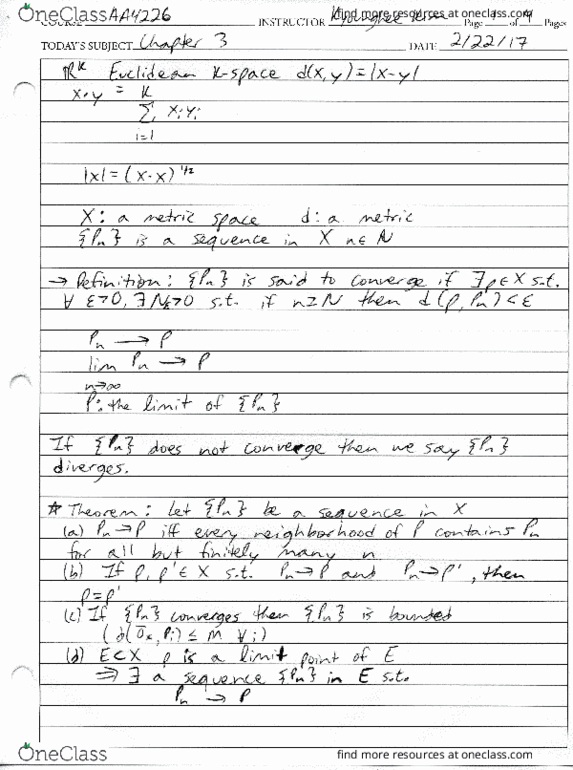 OneClass AA4226 INSTRUCTOR find more resources at oneclass.com
of 4 Pages
TODAY'S SUBJECT Chapter 3 DATE 2/22/17
ℝᵏ Euclidean k-space d(x,y)=|x-y|
x·y = k
∑ xᵢyᵢ
i=1
|x| = (x·x)^1/2
X: a metric space d: a metric
{Pₙ} is a sequence in X n∈ℕ
→ Definition: {Pₙ} is said to converge if ∃p∈X s.t.
∀ ε>0, ∃Nε>0 s.t. if n≥N then d(p,Pₙ)<ε
Pₙ → P
lim Pₙ → P
n→∞
P: the limit of {Pₙ}
If {Pₙ} does not converge then we say {Pₙ}
diverges.
* Theorem: Let {Pₙ} be a sequence in X
(a) Pₙ→P iff every neighborhood of P contains Pₙ
for all but finitely many n
(b) If p, p'∈X s.t. Pₙ→p and Pₙ→p', then
p=p'
(c) If {Pₙ} converges then {Pₙ} is bounded
(d(0ₓ, Pᵢ) ≤ M ∀i)
(d) E⊂X p is a limit point of E
⇒ ∃ a sequence {Pₙ} in E s.t.
Pₙ → P
OneClass find more resources at oneclass.com